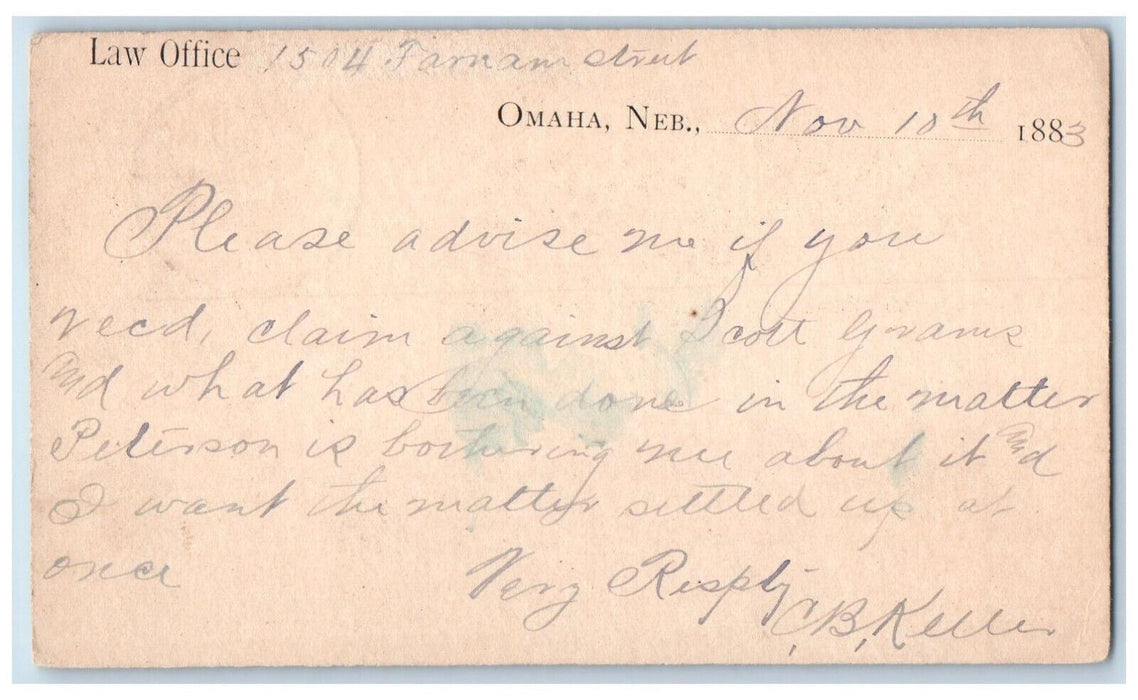 Law Office 1504 Farnam Street
Omaha, Neb., Nov 10th 1883
Please advise me if you
recd, claim against Scott Grams
and what has been done in the matter
Peterson is bothering me about it and
I want the matter settled up at
once Very Resptly
C, B, Keller